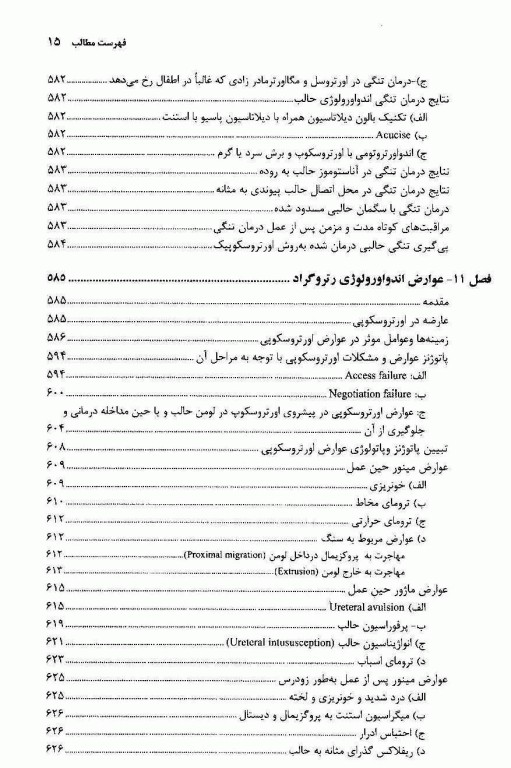 فهرست مطالب ۱۵
ج)-درمان تنگی در اورتروسل و مگااورترمادر زادی که غالباً در اطفال رخ می‌دهد ۵۸۲
نتایج درمان تنگی اندواورولوژی حالب ۵۸۲
الف) تکنیک بالون دیلاتاسیون همراه با دیلاتاسیون پاسیو با استنت ۵۸۲
ب) Acucise ۵۸۲
ج) اندواورتروتومی با اورتروسکوپ و برش سرد یا گرم ۵۸۲
نتایج درمان تنگی در آناستوموز حالب به روده ۵۸۳
نتایج درمان تنگی در محل اتصال حالب پیوندی به مثانه ۵۸۳
درمان تنگی با سگمان حالبی مسدود شده ۵۸۳
مراقبت‌های کوتاه مدت و مزمن پس از عمل درمان تنگی ۵۸۳
پی‌گیری تنگی حالبی درمان شده به‌روش اورتروسکوپیک ۵۸۴
فصل ۱۱- عوارض اندواورولوژی رتروگراد ۵۸۵
مقدمه ۵۸۵
عارضه در اورتروسکوپی ۵۸۵
زمینه‌ها وعوامل موثر در عوارض اورتروسکوپی ۵۸۶
پاتوژنز عوارض و مشکلات اورتروسکوپی با توجه به مراحل آن ۵۹۴
الف: Access failure ۵۹۴
ب: Negotiation failure ۶۰۰
ج: عوارض اورتروسکوپی در پیشروی اورتروسکوپ در لومن حالب و یا حین مداخله درمانی و
جلوگیری از آن ۶۰۴
تبیین پاتوژنز وپاتولوژی عوارض اورتروسکوپی ۶۰۸
عوارض مینور حین عمل ۶۰۹
الف) خونریزی ۶۰۹
ب) ترومای مخاط ۶۱۰
ج) ترومای حرارتی ۶۱۲
د) عوارض مربوط به سنگ ۶۱۲
مهاجرت به پروکزیمال درداخل لومن (Proximal migration) ۶۱۲
مهاجرت به خارج لومن (Extrusion) ۶۱۳
عوارض ماژور حین عمل ۶۱۵
الف) Ureteral avulsion ۶۱۵
ب- پرفوراسیون حالب ۶۱۹
ج) انواژیناسیون حالب (Ureteral intususception) ۶۲۱
د) ترومای اسباب ۶۲۳
عوارض مینور پس از عمل به‌طور زودرس ۶۲۵
الف) درد شدید و خونریزی و لخته ۶۲۵
ب) میگراسیون استنت به پروگزیمال و دیستال ۶۲۶
ج) احتباس ادرار ۶۲۶
د) ریفلاکس گذرای مثانه به حالب ۶۲۶